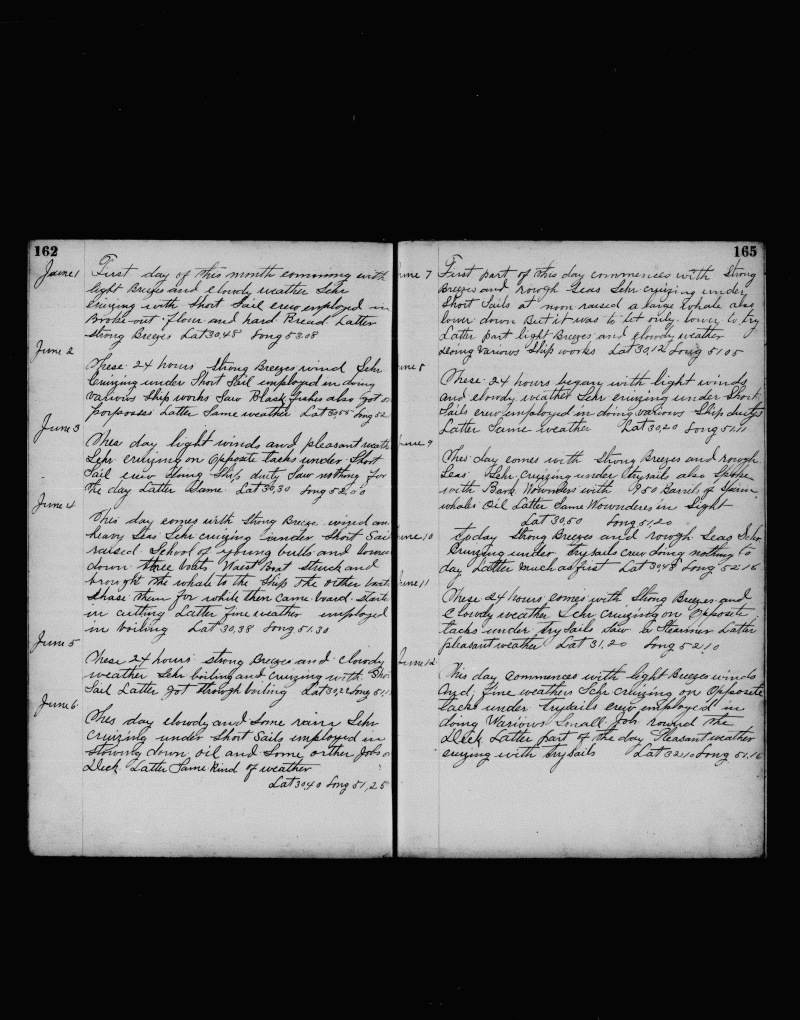 162
June 1 First day of this month comming with
light Breezes and Clowdy weather Schr
Cruizing with Short Sail crew employed in
Broke-out Flour and hard Bread Latter
Strong Breezes Lat 30,48 Long 53.08
June 2
These 24 hours Strong Breezes wind Schr
Cruizing under Short Sail employed in doing
various Ship works Saw Black fishes also got
porposses Latter Same weather Lat 30,55 Long 52
June 3
This day light winds and pleasant
Schr cruizing on Opposite tacks under Short
Sail crew doing Ship duty Saw nothing for
the day Latter Same Lat 30,30 Long 52,00
June 4
This day comes with Strong Breeze wind an
heavy Seas Schr cruizing under Short Sai
raised School of young bulls and lowed
down three boats Waist Boat Struck and
brought the whale to the Ship the orther boats
chase them for while then came board Start
in cutting Latter fine weather employed
in boiling Lat 30,38 Long 51.30
June 5
These 24 hours strong Breezes and clowdy
weather Schr boiling and cruizing with Sho
Sail Latter got through boiling Lat 30,22 Long 51,1
June 6
This day clowdy and Some rainy Schr
cruizing under Short Sails employed in
Stowing down oil and Some orther Jobs on
Deck Latter Same kind of weather
Lat 30,40 Long 51,25
165
June 7 First part of this day commences with Strong
Breezes and rough Seas Schr cruizing under
Short Sails at non raised a large whale also
lower down But it was to let only lower to try
Latter part light Breezes and clowdy weather
doing various Ship works Lat 30,12 Long 51 05
June 8
These 24 hours began with light winds
and clowdy weather Schr cruizing under Short
Sails crew employed in doing various Ship dutys
Latter Same weather Lat 30,20 Long 51,11
June 9
This day comes with Strong Breezes and rough
Seas Schr Cruizing under trysails also Spoke
with Bark Wownders with 950 Barrels of Sperm
whales Oil Latter Same Wownderes in Sight
Lat 30,50 Long 51,20
June 10 to day Strong Breezes and rough Seas Schr
Cruizing under trysails crew doing nothing to
day Latter much as first Lat 30,48 Long 52 16
June 11
These 24 hours comes with Strong Breezes and
Clowdy weather Schr cruizing on Opposite
tacks under trysails Saw a Steamer Latter
pleasant weather Lat 31,20 Long 52,10
June 12
This day commences with light Breezes winds
And fine weather Schr Cruizing on Opposite
tacks under trysails crew employed in
doing Warious Small Job round the
Deck Latter part of the day Pleasant weather
cruizing with trysails Lat 32,10 Long 51,16